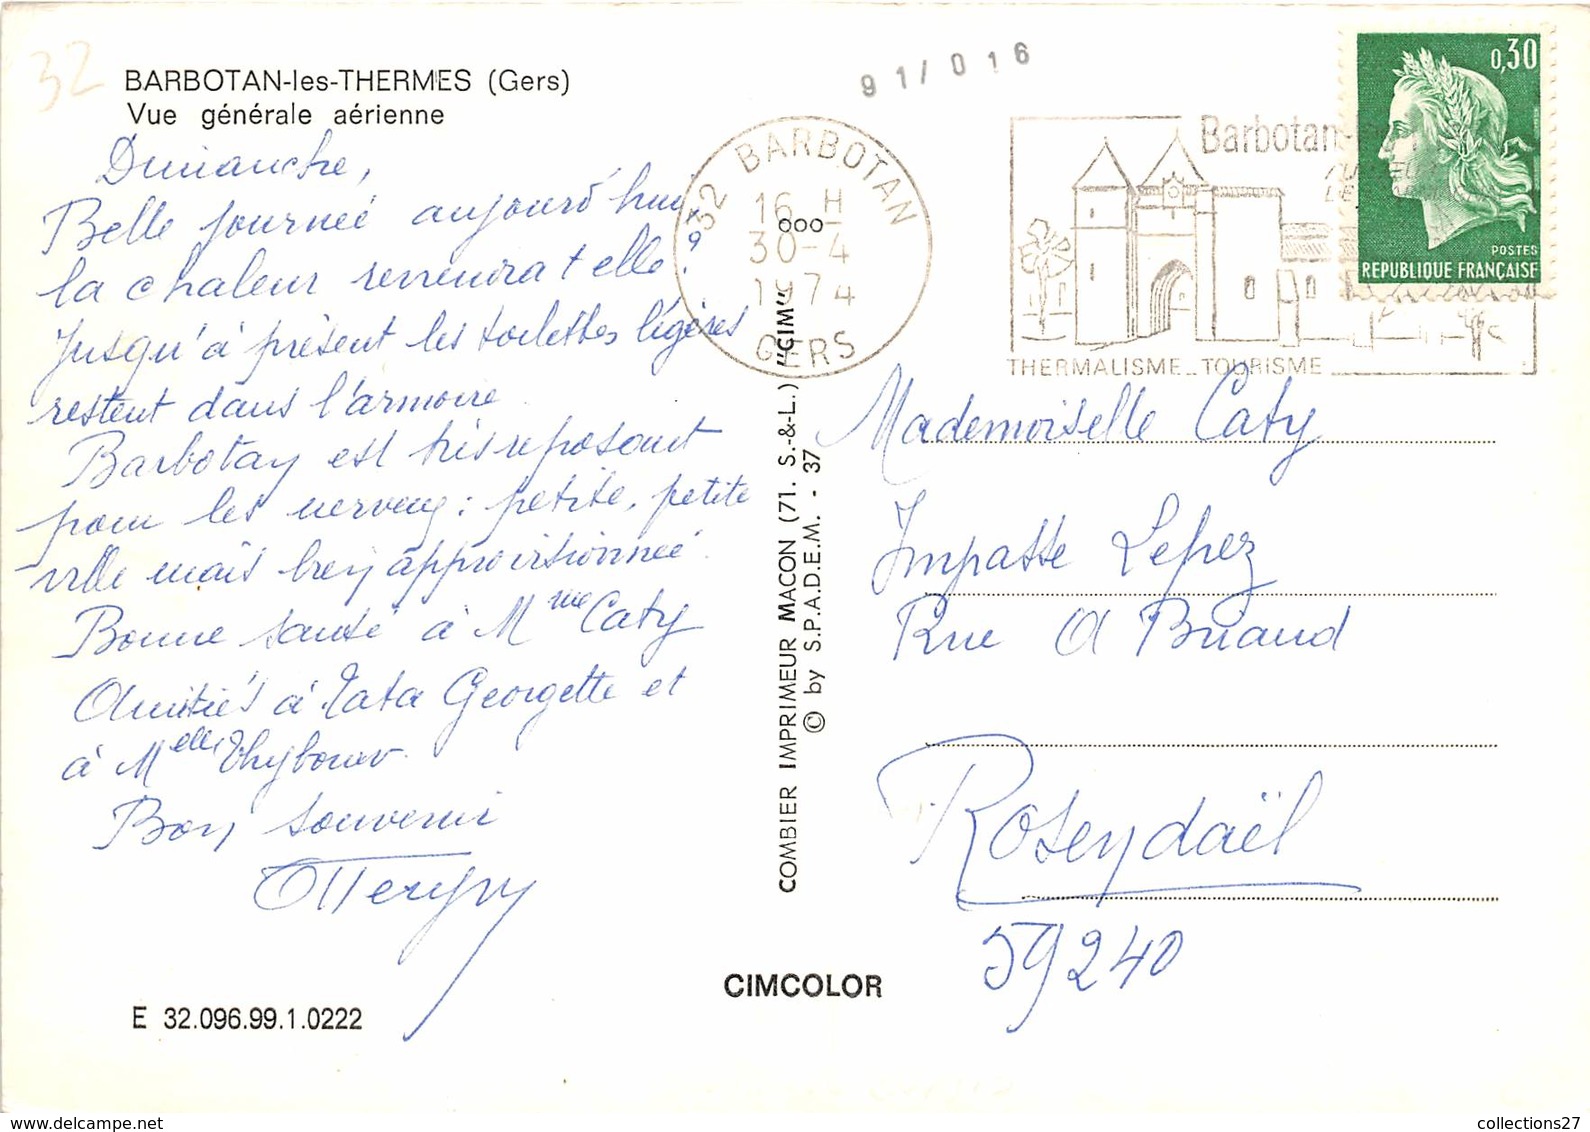 32
BARBOTAN-les-THERMES (Gers)
Vue générale aérienne
Dimanche,
Belle journeé aujourd'hui
la chaleur reviendra t elle ?
Jusqu'à présent les toilettes légères
restent dans l'armoire.
Barbotan est très reposant
pour les nerveux : petite, petite
ville mais bien approvisionneé.
Bonne santé à Mme Caty
Amitiés à Tata Georgette et
à Melle
Bon souvenir
E 32.096.99.1.0222
91/016
32 BARBOTAN
16 H
30-4
1974
GERS
Barbotan
THERMALISME_TOURISME
0,30
POSTES
REPUBLIQUE FRANÇAISE
COMBIER IMPRIMEUR MACON (71. S.-&-L.) "CIM"
© by S.P.A.D.E.M. - 37
CIMCOLOR
Mademoiselle Caty
Impasse Lepez
Rue A Briand
Rosendaël
59240
collections27